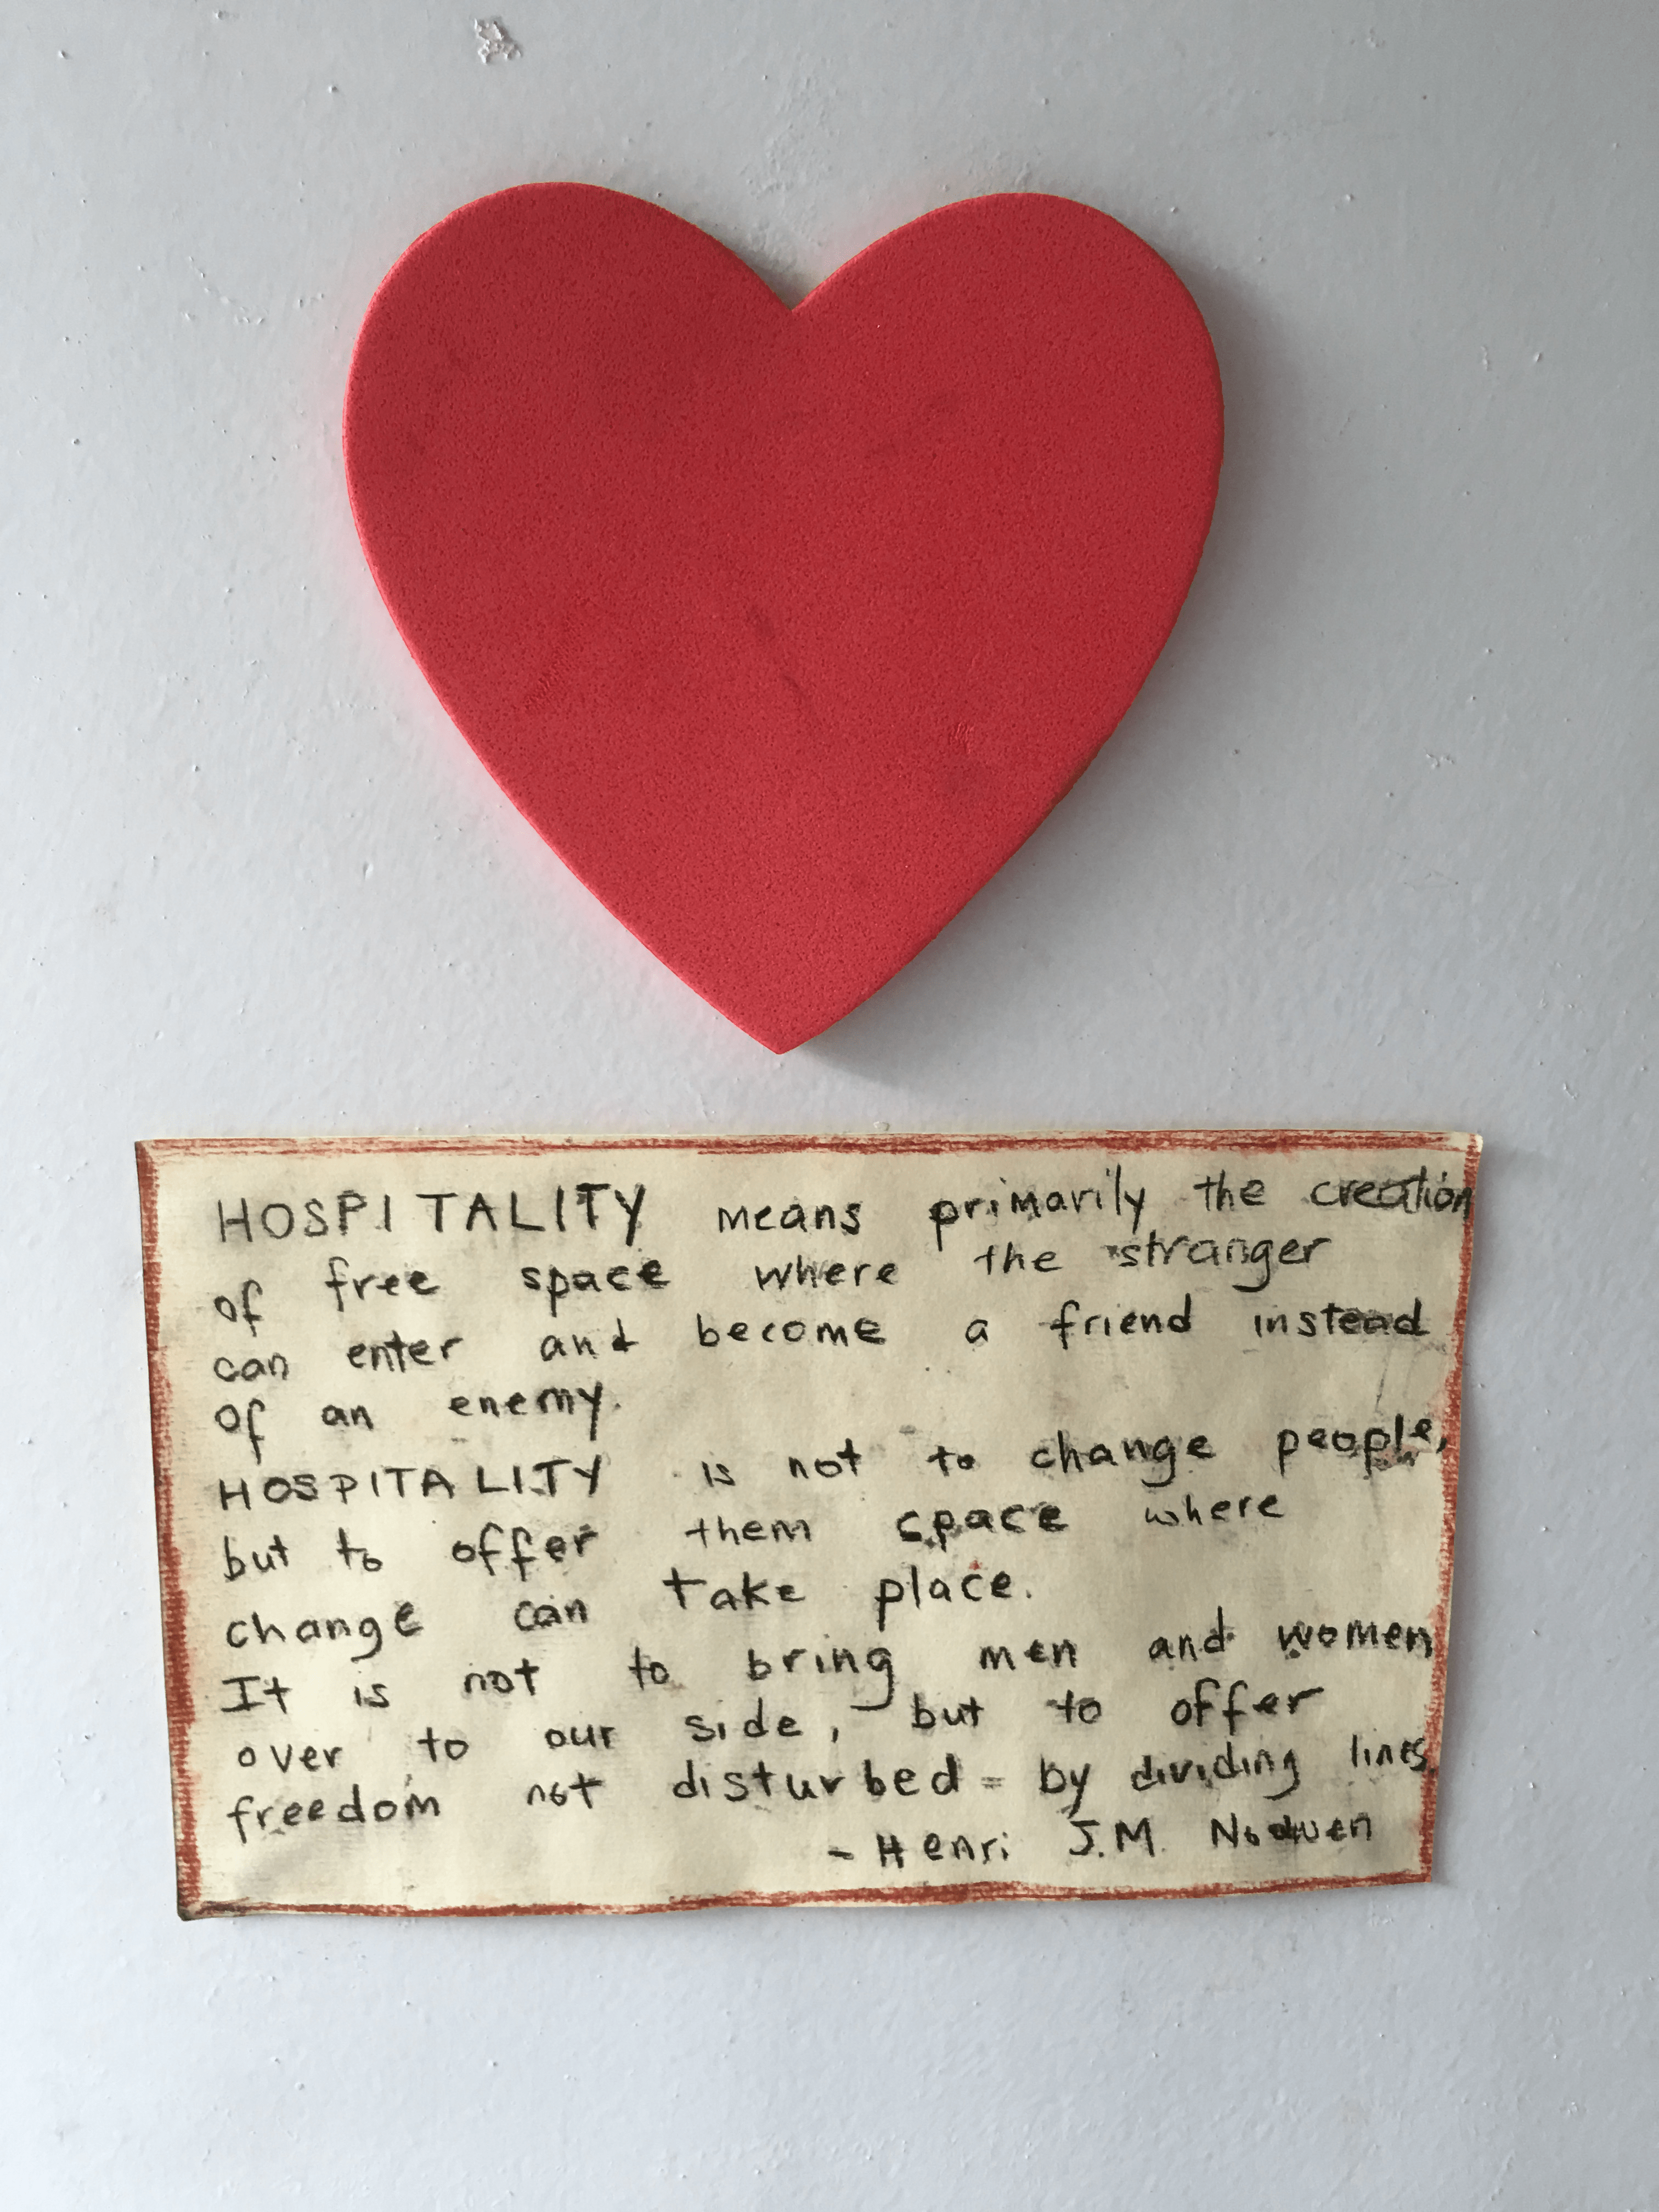 HOSPITALITY means primarily the creation
of free space where the stranger
can enter and become a friend instead
of an enemy.
HOSPITALITY is not to change people,
but to offer them space where
change can take place.
It is not to bring men and women
over to our side, but to offer
freedom not disturbed by dividing lines.
- Henri J.M. Nouwen